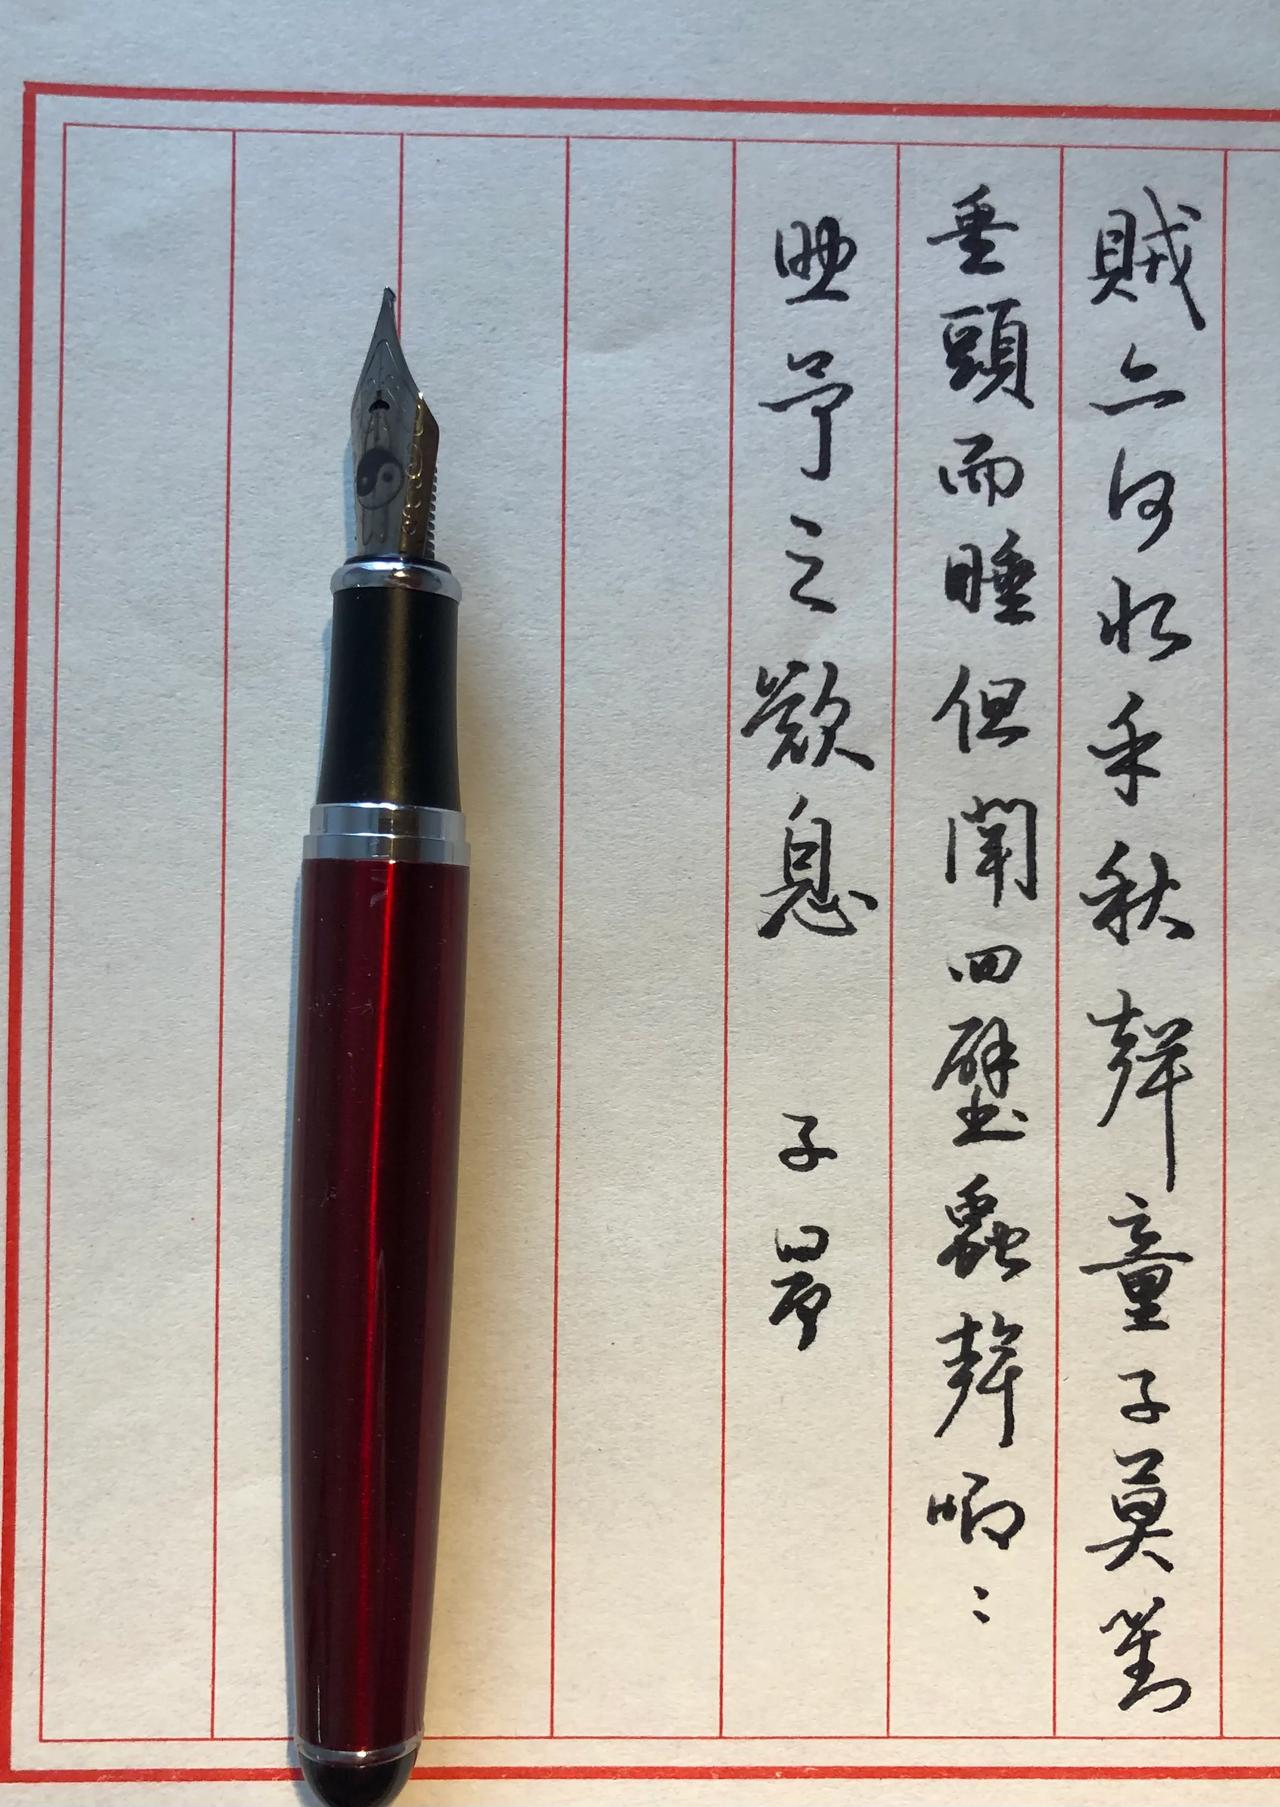 賊亦何恨乎秋聲童子莫對
垂頭而睡但聞四壁蟲聲唧〻
助予之歎息 子昂